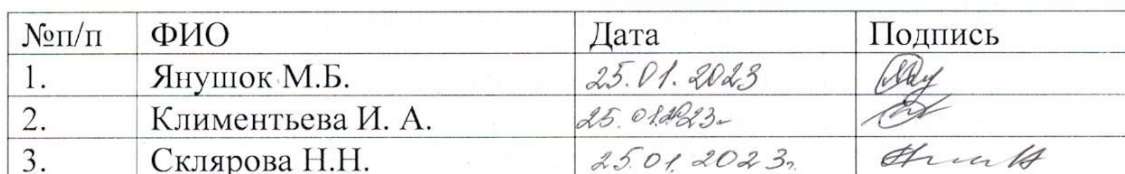 №п/п ФИО Дата Подпись
1. Янушок М.Б. 25.01.2023
2. Климентьева И. А. 25.01.2023г.
3. Склярова Н.Н. 25.01.2023г.